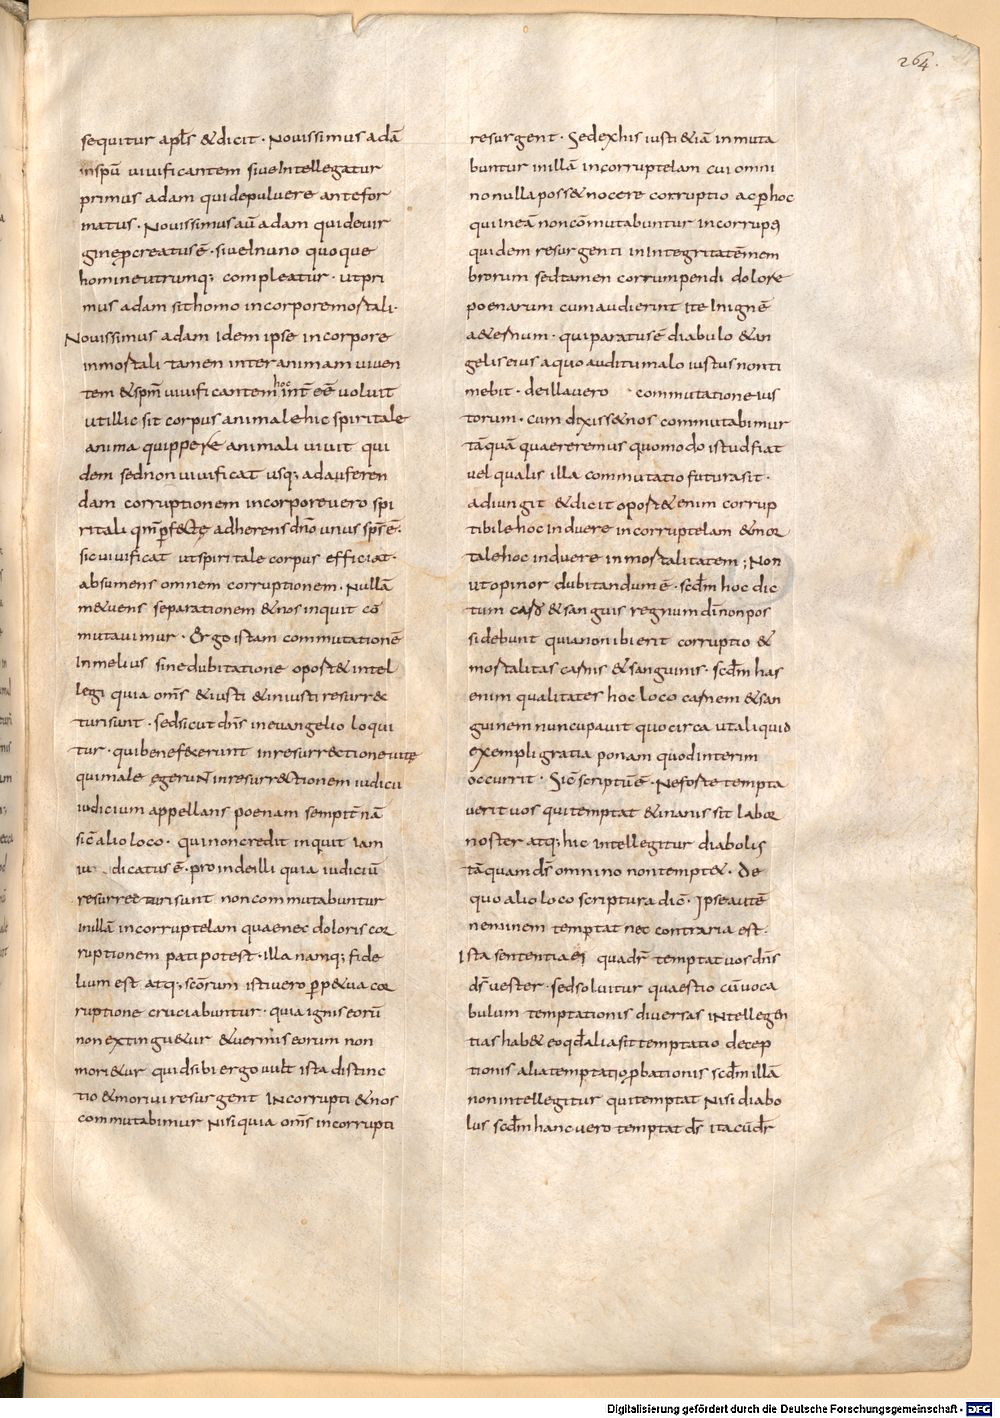 264.
sequitur apl̄s & dicit · Nouissimus adā
inspū uiuificantem siue Intellegatur
primus adam qui depuluere antefor
matus · Nouissimus aū adam qui deuir
gine ꝓcreatus ē · siuelnuno quoque
homine utrumq; compleatur · utpri
mus adam sit homo incorpore mortali ·
Nouissimus adam Idem ipse incorpore
inmortali tamen inter animam uiuen
tem & spm̄ uiuificantem hoc int̄ eē uoluit
ut illic sit corpus animale hic spiritale
anima quippe re animali uiuit qui
dem sed non uiuificat usq; ad auferen
dam corruptionem incorpore uero spi
ritali qm̄ ꝑfecte adherens dn̄o unus sps̄ ē ·
sic uiuificat ut spiritale corpus efficiat ·
absumens omnem corruptionem · Nullā
m&uens separationem & nos inquit cō
mutauimur · Ergo istam commutationē
Inmelius sine dubitatione oport& intel
legi quia oms̄ & iusti & iniusti resurr&
turi sunt · sed sicut dn̄s in euangelio loqui
tur · qui bene fecerunt in resurr&tione uitę
qui male egerunt in resurr&tionem iudicii
iudicium appellans poenam sempit̄nā
sic̄ alio loco · qui non credit inquit Iam
iudicatus ē · proinde illi quia iudiciū
resurrecturi sunt non commutabuntur
inillā incorruptelam quae nec doloris cor
ruptionem pati potest · illa namq; fide
lium est atq; scōrum isti uero ꝑp&ua cor
ruptione cruciabuntur · quia ignis eorū
non extingu&ur & uermis eorum non
mori&ur quid sibi ergo uult ista distinc
tio & mortui resurgent Incorrupti & nos
commutabimur Nisi quia oms̄ incorrupti
resurgent · Sed ex his iusti &iā inmuta
buntur inillā incorruptelam cui omni
no nulla poss& nocere corruptio ac ꝑ hoc
qui in eā non cōmutabuntur incorrupti
quidem resurgent in Integritate mem
brorum sed tamen corrumpendi dolore
poenarum cum audierint Ite In ignē
a&ernum · qui paratus ē diabulo & an
gelis eius a quo auditu malo iustus non ti
mebit · de illa uero commutatione ius
torum · cum dixiss& nos commutabimur
tāquā quaereremus quomodo istud fiat
uel qualis illa commutatio futura sit ·
adiungit & dicit oport& enim corrup
tibile hoc Induere incorruptelam & mor
tale hoc induere inmortalitatem ; Non
ut opinor dubitandum ē · scdm̄ hoc dic
tum caro & sanguis regnum dī non pos
sidebunt quia non ibi erit corruptio &
mortalitas carnis & sanguinis · scdm̄ has
enim qualitates hoc loco carnem & san
guinem nuncupauit quocirca ut aliquid
exempli gratia ponam quod interim
occurrit · Sic̄ scriptū ē · Ne forte tempta
uerit uos qui temptat & inanis sit labor
noster atq; hic intellegitur diabolis
tāquam ds̄ omnino non tempt& · De
quo alio loco scriptura dic̄ · Ipse autē
neminem temptat nec contraria est ·
Ista sententia ei quadr̄ temptat uos dn̄s
ds̄ uester · sed soluitur quaestio cū uoca
bulum temptationis diuersas Intellegen
tias hab& eo qd̄ alia sit temptatio decep
tionis alia temptatio ꝓbationis scdm̄ illā
non intellegitur qui temptat Nisi diabo
lus scdm̄ hanc uero temptat ds̄ ita cū dr̄
Digitalisierung gefördert durch die Deutsche Forschungsgemeinschaft - DFG